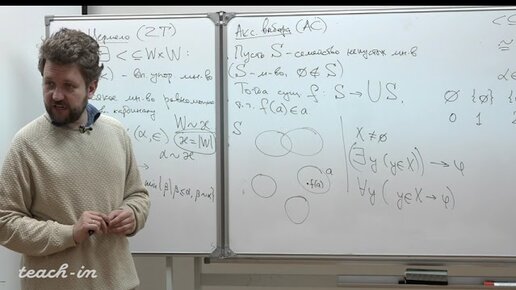 Цермело (ZT)
∃ < ⊆ W×W :
<) - вп. упор. мн-во
мн-во равномощно
кардиналу
(α, ∈)
W ~ ϰ
ϰ = |W|
α ~ ϰ
min {β | β ≤ α, β ~ α}
Акс. выбора (AC)
Пусть S - семейство непустых мн-в
(S - мн-во, ∅ ∉ S)
Тогда сущ. f: S → ∪S,
т.ч. f(a) ∈ a
S
a
f(a)
X ≠ ∅
(∃y (y ∈ X)) → φ
∀y ( y ∈ X → φ)
∅ {∅} {
0 1 2
teach-in